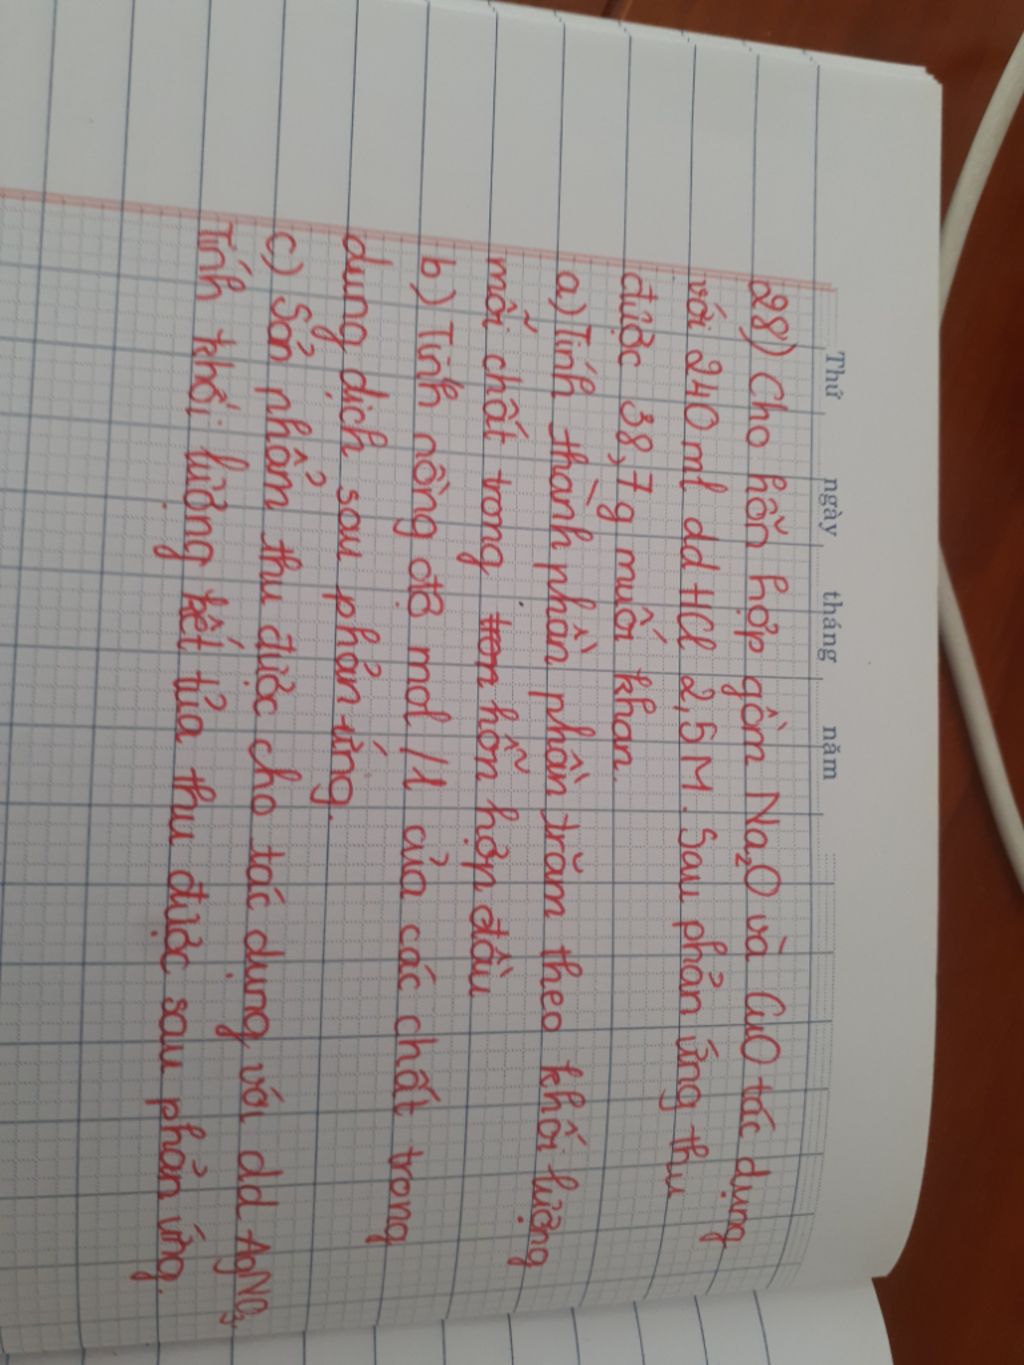 Thứ ngày tháng năm
28) Cho hỗn hợp gồm Na₂O và CuO tác dụng
với 240 ml dd HCl 2,5M. Sau phản ứng thu
được 38,7g muối khan
a) Tính thành phần phần trăm theo khối lượng
mỗi chất trong hỗn hợp đầu
b) Tính nồng độ mol/l của các chất trong
dung dịch sau phản ứng.
c) Sản phẩm thu được cho tác dụng với dd AgNO₃
Tính khối lượng kết tủa thu được sau phản ứng.